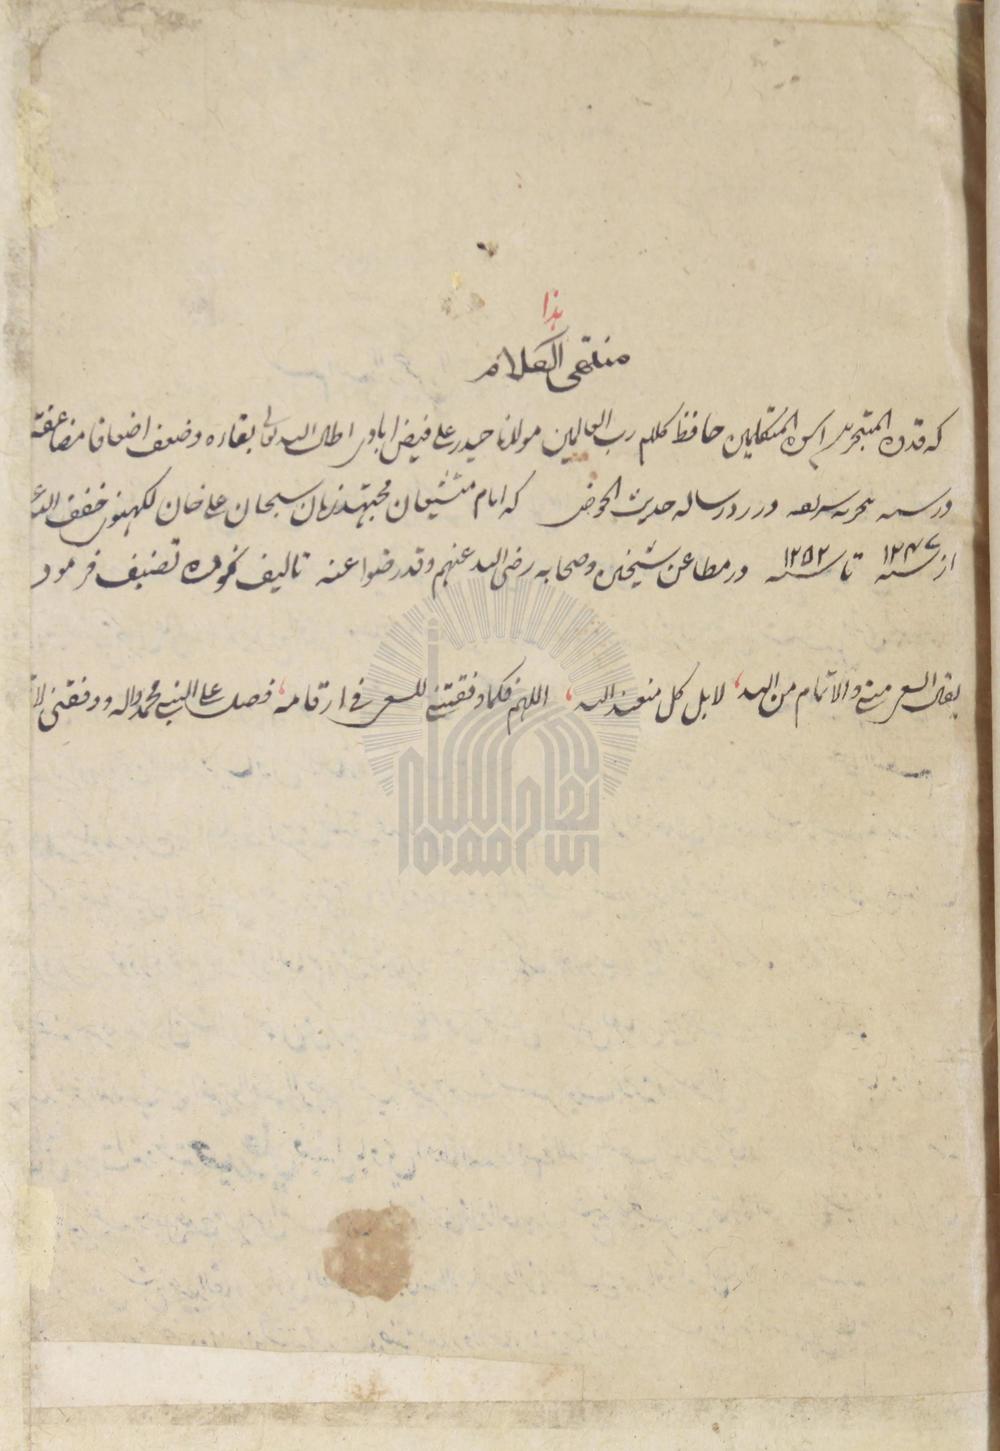 هذا
منتهی الکلام
که قدوة المتبحرین اسوة المتکلمین حافظ کلام رب العالمین مولانا حیدر علی فیض ابادی اطال الله تعالی بقاءه وضعف اضعافا مضاعفة
در سنه هجریه در رد رساله حدیث الحوض که امام متشیعان مجتهد زمان سبحان علی خان لکهنوی خفف الله
از سنه ۱۲۴۷ تا سنه ۱۲۵۲ در مطاعن شیخین وصحابه رضی الله عنهم وقد رضوا عنه تالیف نموده تصنیف فرمود
السعی منی والاتمام من الله، لا بل کل من عند الله، اللهم فکما وفقتنی للسعی فی ارقامه، فصل علی النبی محمد واله ووفقنی